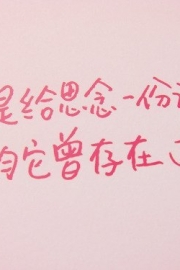 是给思念一份
它曾存在